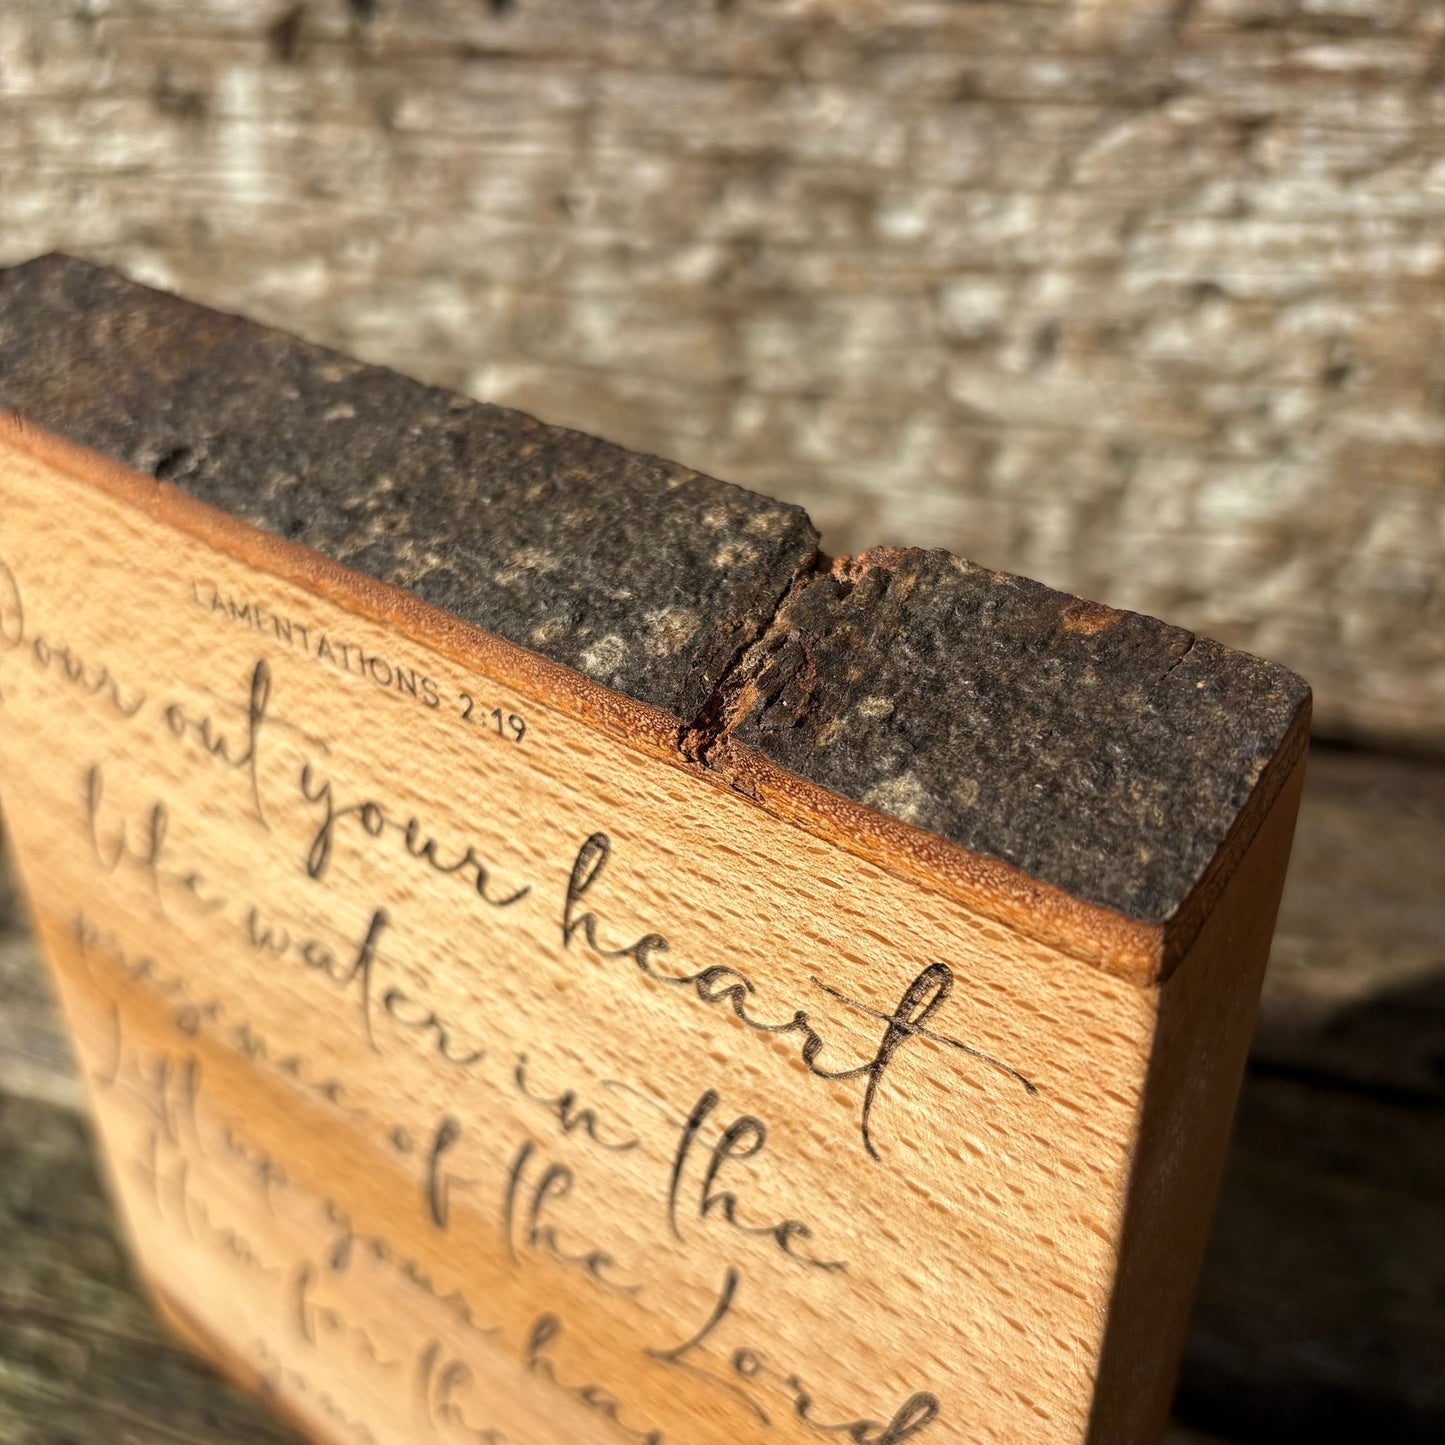 LAMENTATIONS 2:19
Pour out your heart
like water in the
presence of the Lord
Lift up your han
Him for the